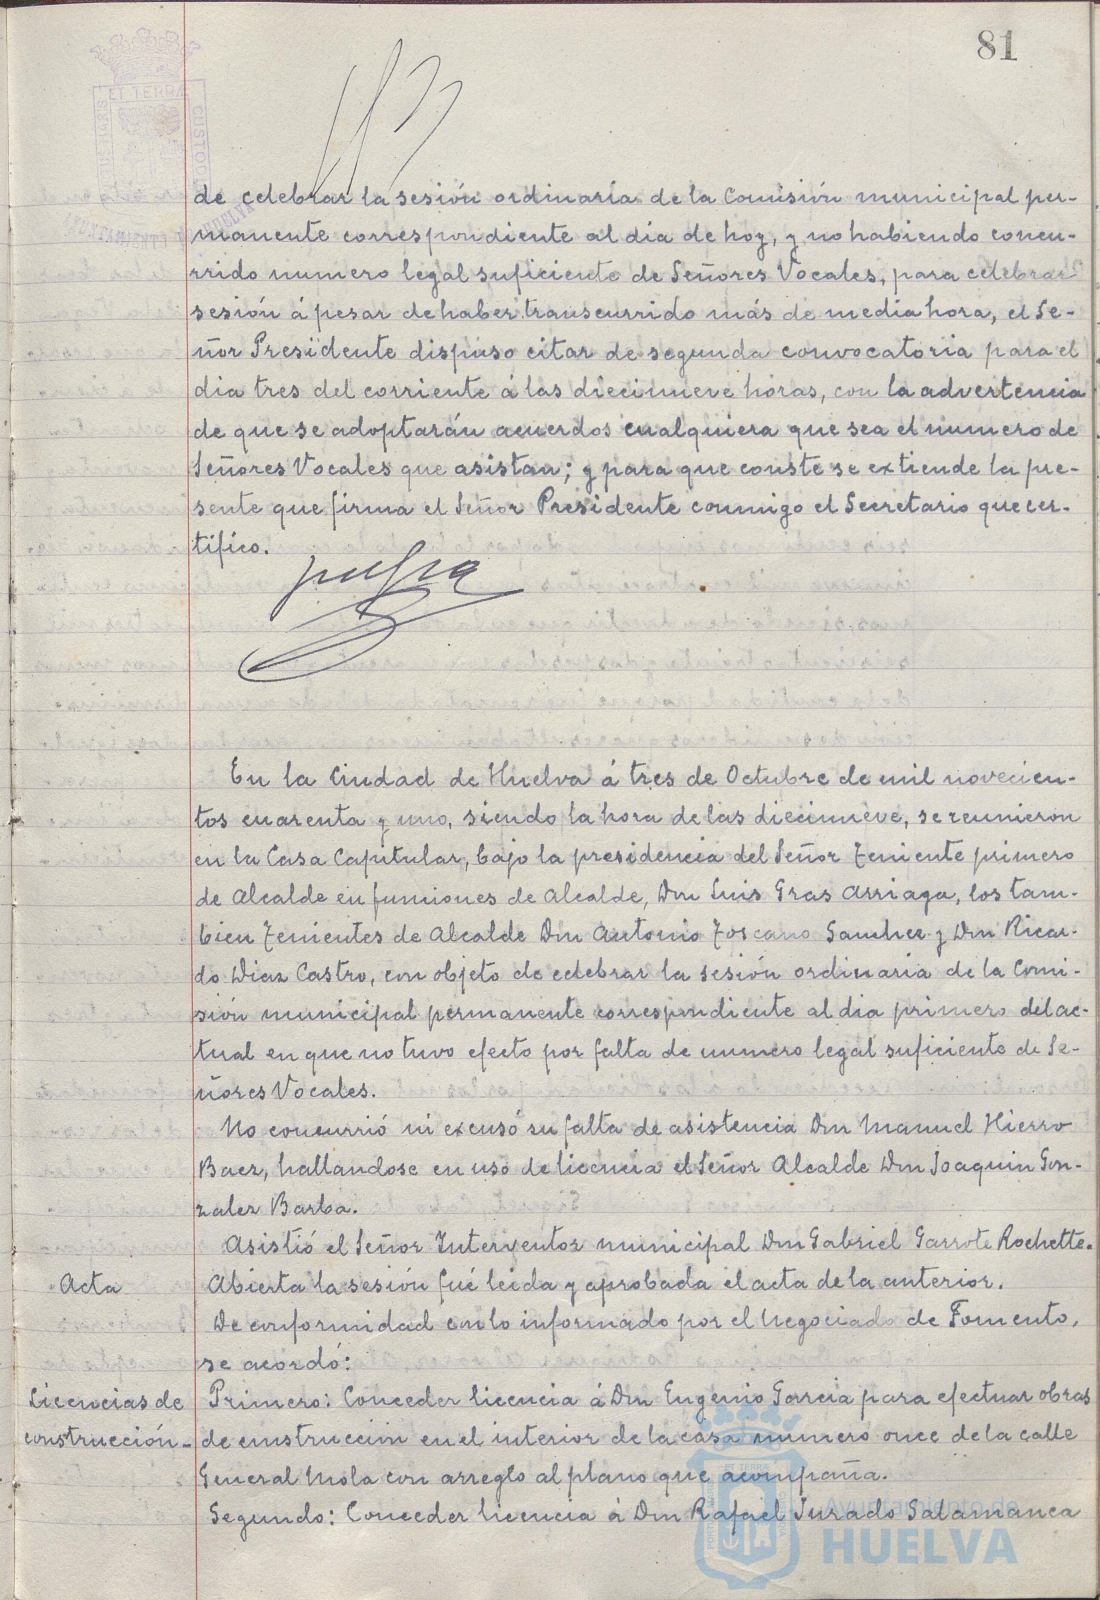 81
ET TERRA
CUSTODIA
de celebrar la sesión ordinaria de la Comisión municipal per-
manente correspondiente al dia de hoy, y no habiendo concu-
rrido numero legal suficiente de Señores Vocales, para celebrar
sesión á pesar de haber transcurrido más de media hora, el Se-
ñor Presidente dispuso citar de segunda convocatoria para el
dia tres del corriente á las diecinueve horas, con la advertencia
de que se adoptarán acuerdos cualquiera que sea el numero de
Señores Vocales que asistan; y para que conste se extiende la pre-
sente que firma el Señor Presidente conmigo el Secretario que cer-
tifico.
En la Ciudad de Huelva á tres de Octubre de mil novecien-
tos cuarenta y uno, siendo la hora de las diecinueve, se reunieron
en la Casa Capitular, bajo la presidencia del Señor Teniente primero
de Alcalde en funciones de Alcalde, Don Luis Gras Arriaga, los tam-
bien Tenientes de Alcalde Don Antonio Toscano Sanchez y Don Ricar-
do Diaz Castro, con objeto de celebrar la sesión ordinaria de la Comi-
sión municipal permanente correspondiente al dia primero del ac-
tual en que no tuvo efecto por falta de numero legal suficiente de Se-
ñores Vocales.
No concurrió ni excusó su falta de asistencia Don Manuel Hierro
Baez, hallandose en uso de licencia el Señor Alcalde Don Joaquin Gon-
zalez Barba.
Asistió el Señor Interventor municipal Don Gabriel Garrote Rochette.
Acta Abierta la sesión fué leida y aprobada el acta de la anterior.
De conformidad con lo informado por el Negociado de Fomento,
se acordó:
Licencias de Primero: Conceder licencia á Don Eugenio Garcia para efectuar obras
construcción- de construcción en el interior de la casa numero once de la calle
General Mola con arreglo al plano que acompaña.
Segundo: Conceder licencia á Don Rafael Jurado Salamanca
Ayuntamiento de
HUELVA